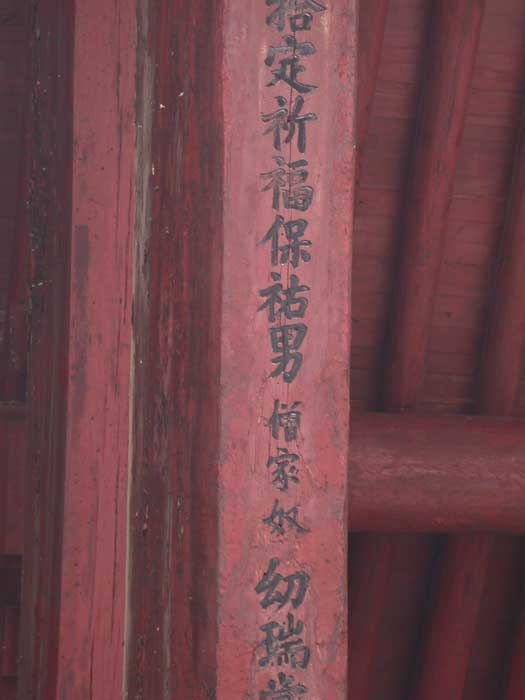 捨定祈福保祐男僧家奴幼瑞